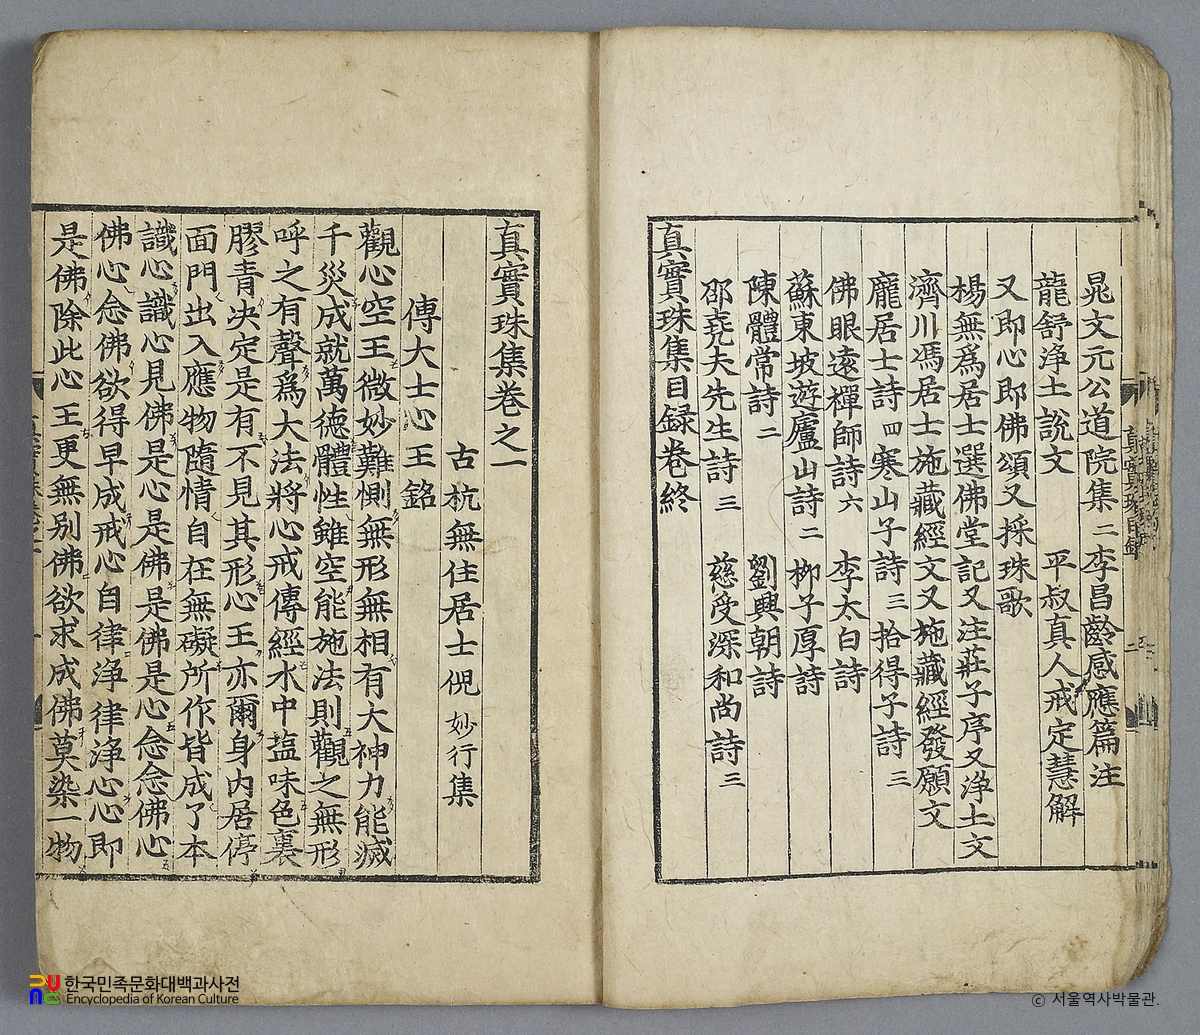 晁文元公道院集二李昌齡感應篇注
龍舒浄土說文 平叔真人戒定慧解
又即心即佛頌又採珠歌
楊無爲居士選佛堂記又注莊子序又浄土文
濟川馮居士施藏經文又施藏經發願文
龐居士詩四寒山子詩三拾得子詩三
佛眼遠禪師詩六 李太白詩
蘇東坡遊廬山詩二 柳子厚詩
陳體常詩二 劉興朝詩
邵堯夫先生詩三 慈受深和尚詩三
真實珠集目録卷終
真實珠集目録
二
真實珠集卷之一
古杭無住居士倪 妙行集
傅大士心王銘
觀心空王微妙難惻無形無相有大神力能滅
千災成就萬德體性雖空能施法則觀之無形
呼之有聲爲大法將心戒傳經水中塩味色裏
膠青决定是有不見其形心王亦爾身内居停
面門出入應物隨情自在無礙所作皆成了本
識心識心見佛是心是佛是佛是心念念佛心
佛心念佛欲得早成戒心自律浄律浄心心即
是佛除此心王更無别佛欲求成佛莫染一物
한국민족문화대백과사전
Encyclopedia of Korean Culture
ⓒ 서울역사박물관.